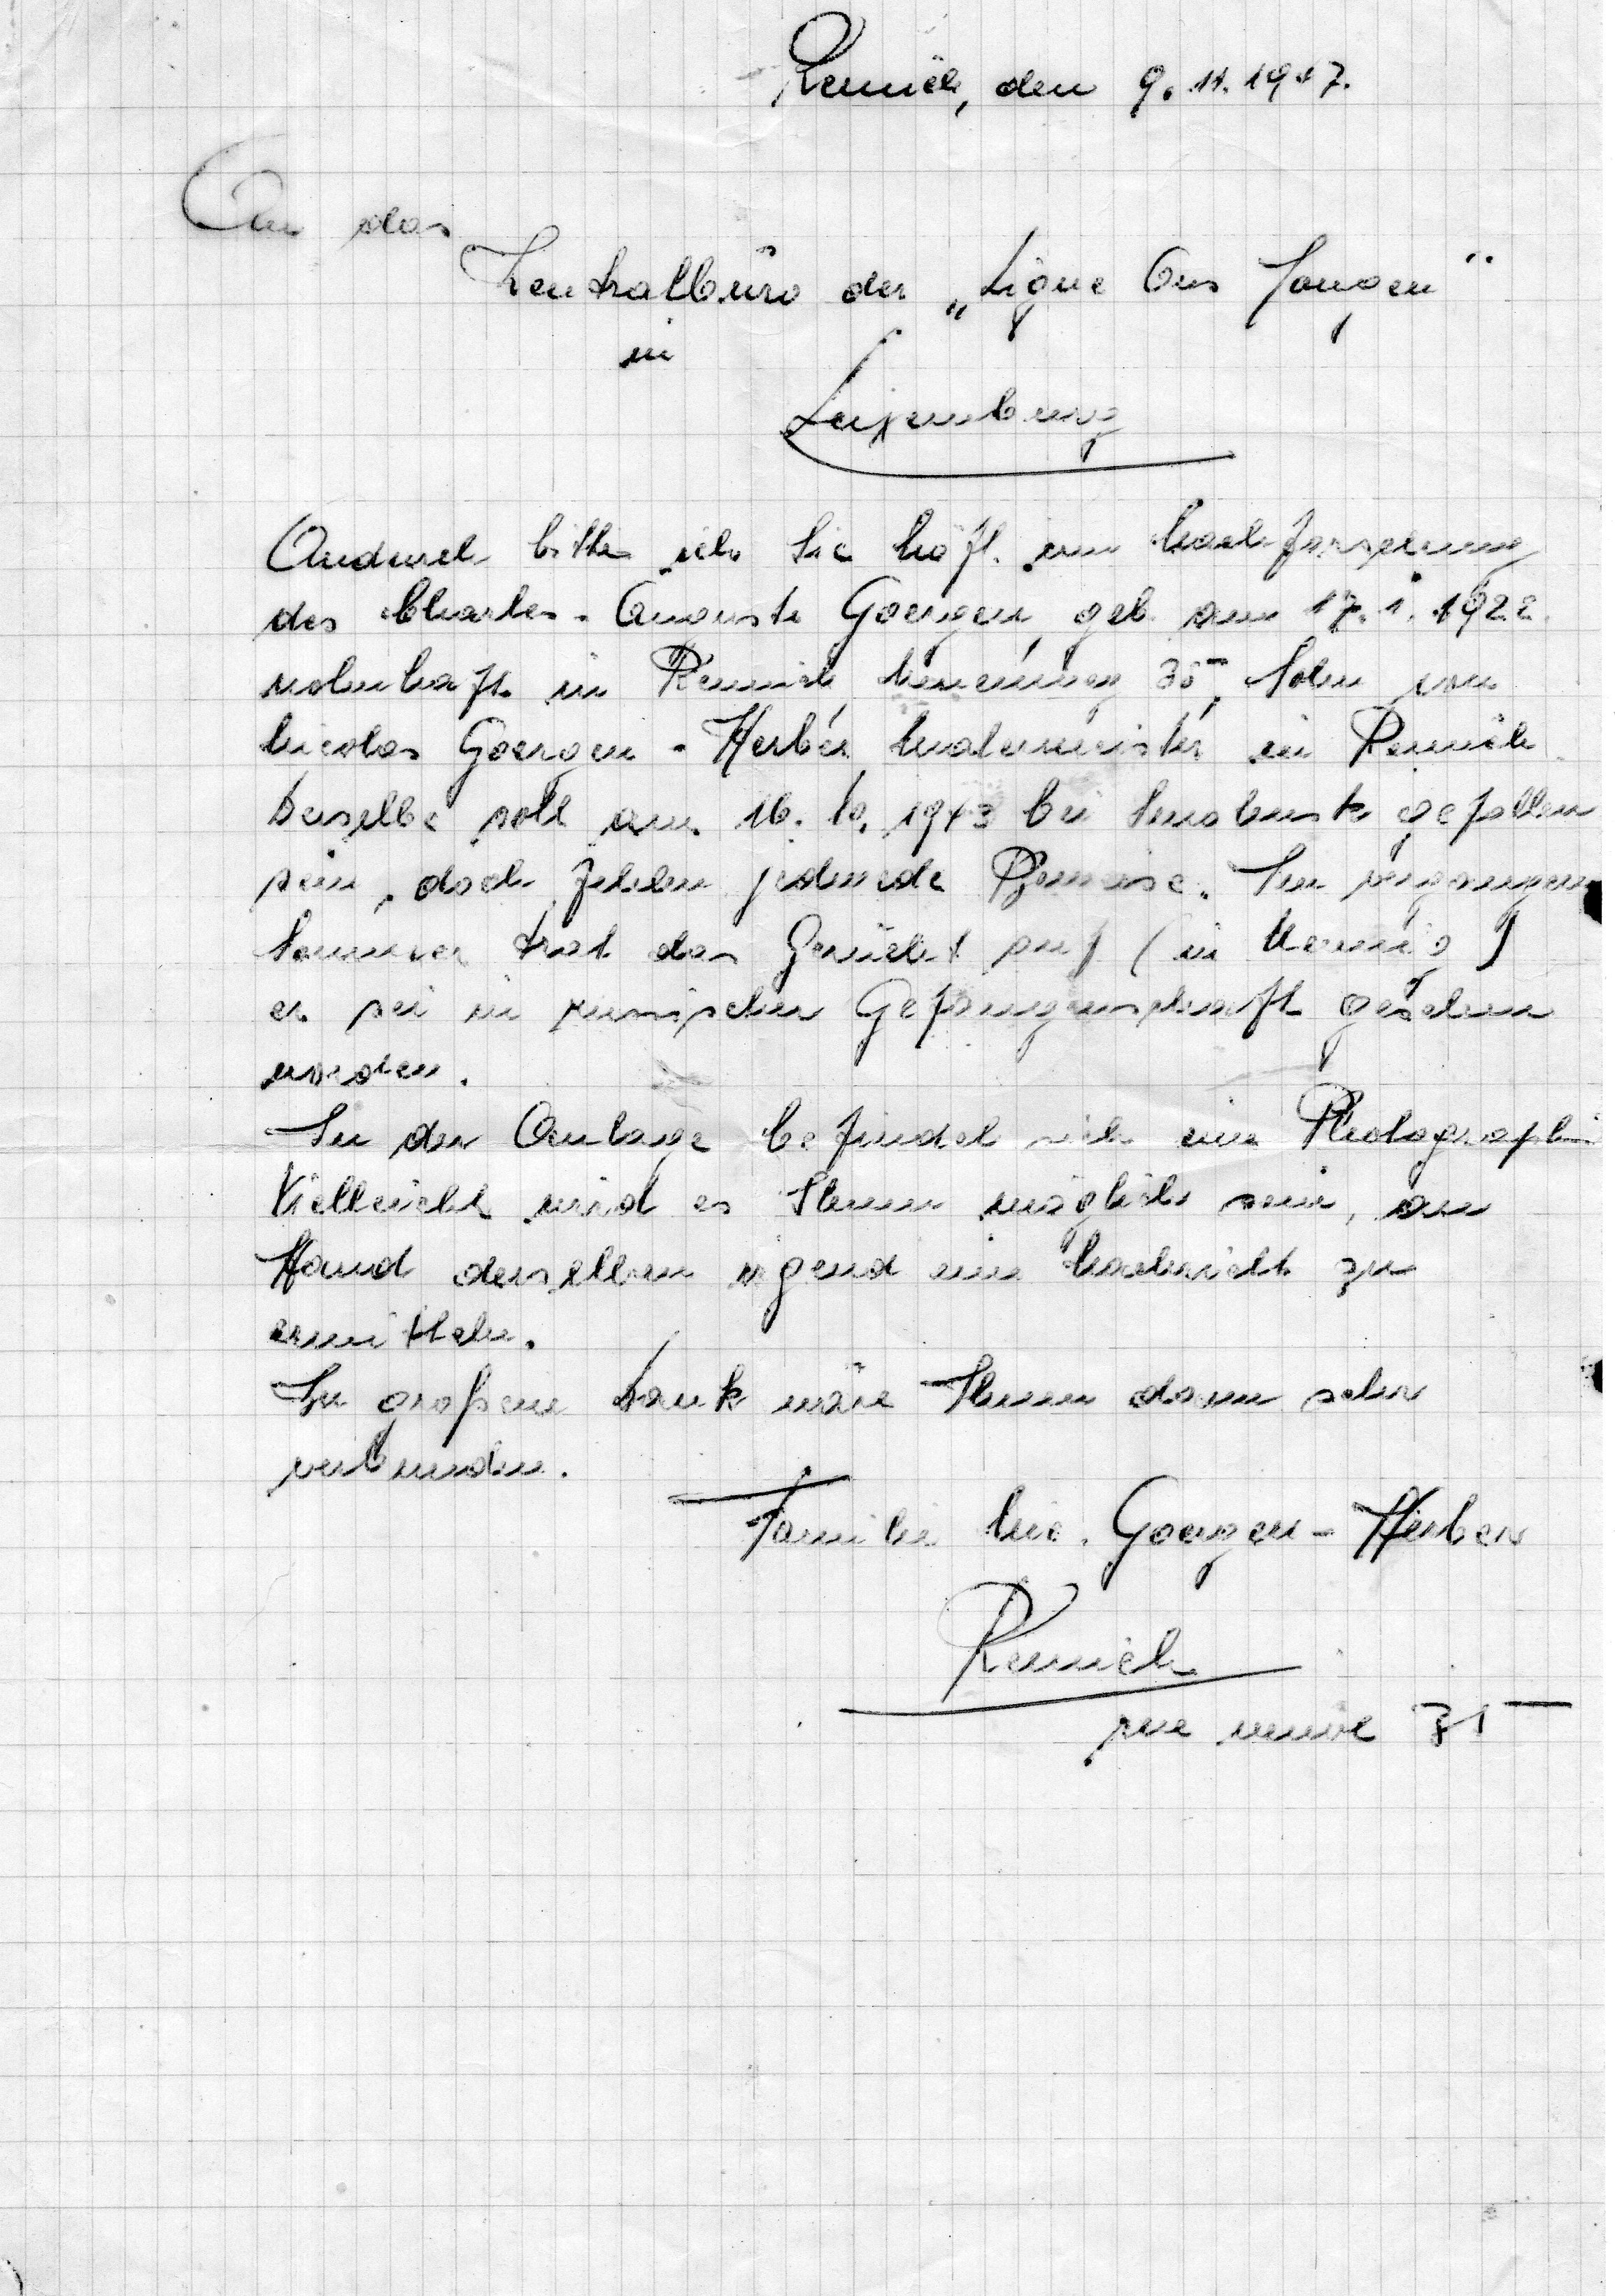 Remich, den 9.11.1947.
An das
Zentralbüro der „Ligue Ons Jongen"
in
Luxemburg
Andurch bitte ich Sie höfl. um Nachforschung
des Charles-Auguste Goergen, geb. am 17.1.1922
wohnhaft in Remich, Sohn von
Nicolas Goergen-Herber in Remich.
Derselbe soll am 16.10.1943 bei gefallen
sein, doch fehlen jedwede Beweise. Im vergangenen
Sommer trat das Gerücht auf (in Nennig)
er sei in russischer Gefangenschaft gesehen
worden.
In der Anlage befindet sich eine Photographie
Vielleicht wird es Ihnen möglich sein, an
Hand derselben irgend eine Nachricht zu
ermitteln.
Zu großem Dank wäre Ihnen dann sehr
verbunden.
Familie Nic. Goergen-Herber
Remich
rue neuve 31